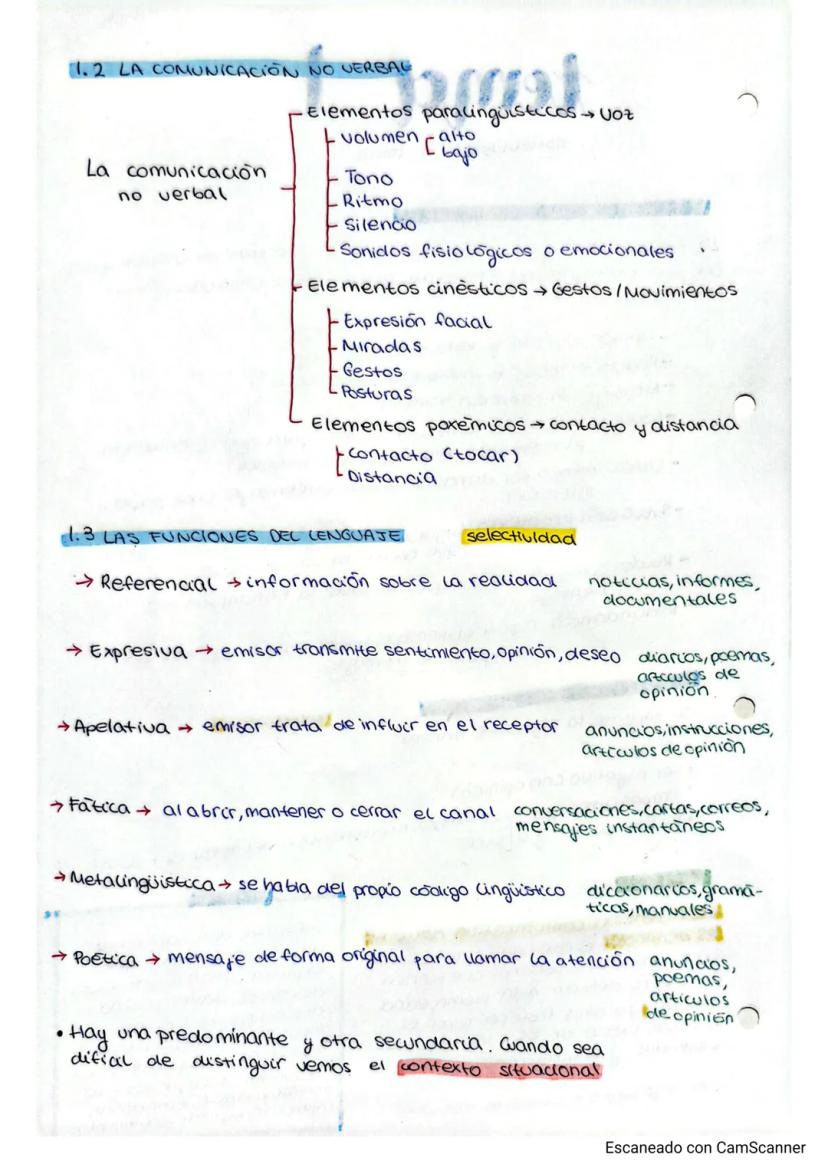 1.2 LA COMUNICACIÓN NO VERBAL
La comunicación
no verbal
Elementos paralingüísticos → voz
volumen [ alto
bajo
Tono
Ritmo
Silencio
Sonidos fisiológicos o emocionales
Elementos cinésticos → Gestos / Movimientos
Expresión facial
Miradas
Gestos
Posturas
Elementos poxémicos → contacto y distancia
Contacto (tocar)
Distancia
1.3 LAS FUNCIONES DEL LENGUAJE selectividad
→ Referencial → información sobre la realidad noticias, informes,
documentales
→ Expresiva → emisor transmite sentimiento, opinión, deseo diarios, poemas,
artículos de
opinión.
→ Apelativa → emisor trata de influir en el receptor anuncios, instrucciones,
artículos de opinión
→ Fática → al abrir, mantener o cerrar el canal conversaciones, cartas, correos,
mensajes instantáneos
→ Metalingüística → se habla del propio código lingüístico diccionarios, gramá-
ticas, manuales
→ Poética → mensaje de forma original para llamar la atención anuncios,
poemas,
artículos
de opinión
• Hay una predominante y otra secundaria. Cuando sea
difícil de distinguir vemos el contexto situacional
Escaneado con CamScanner